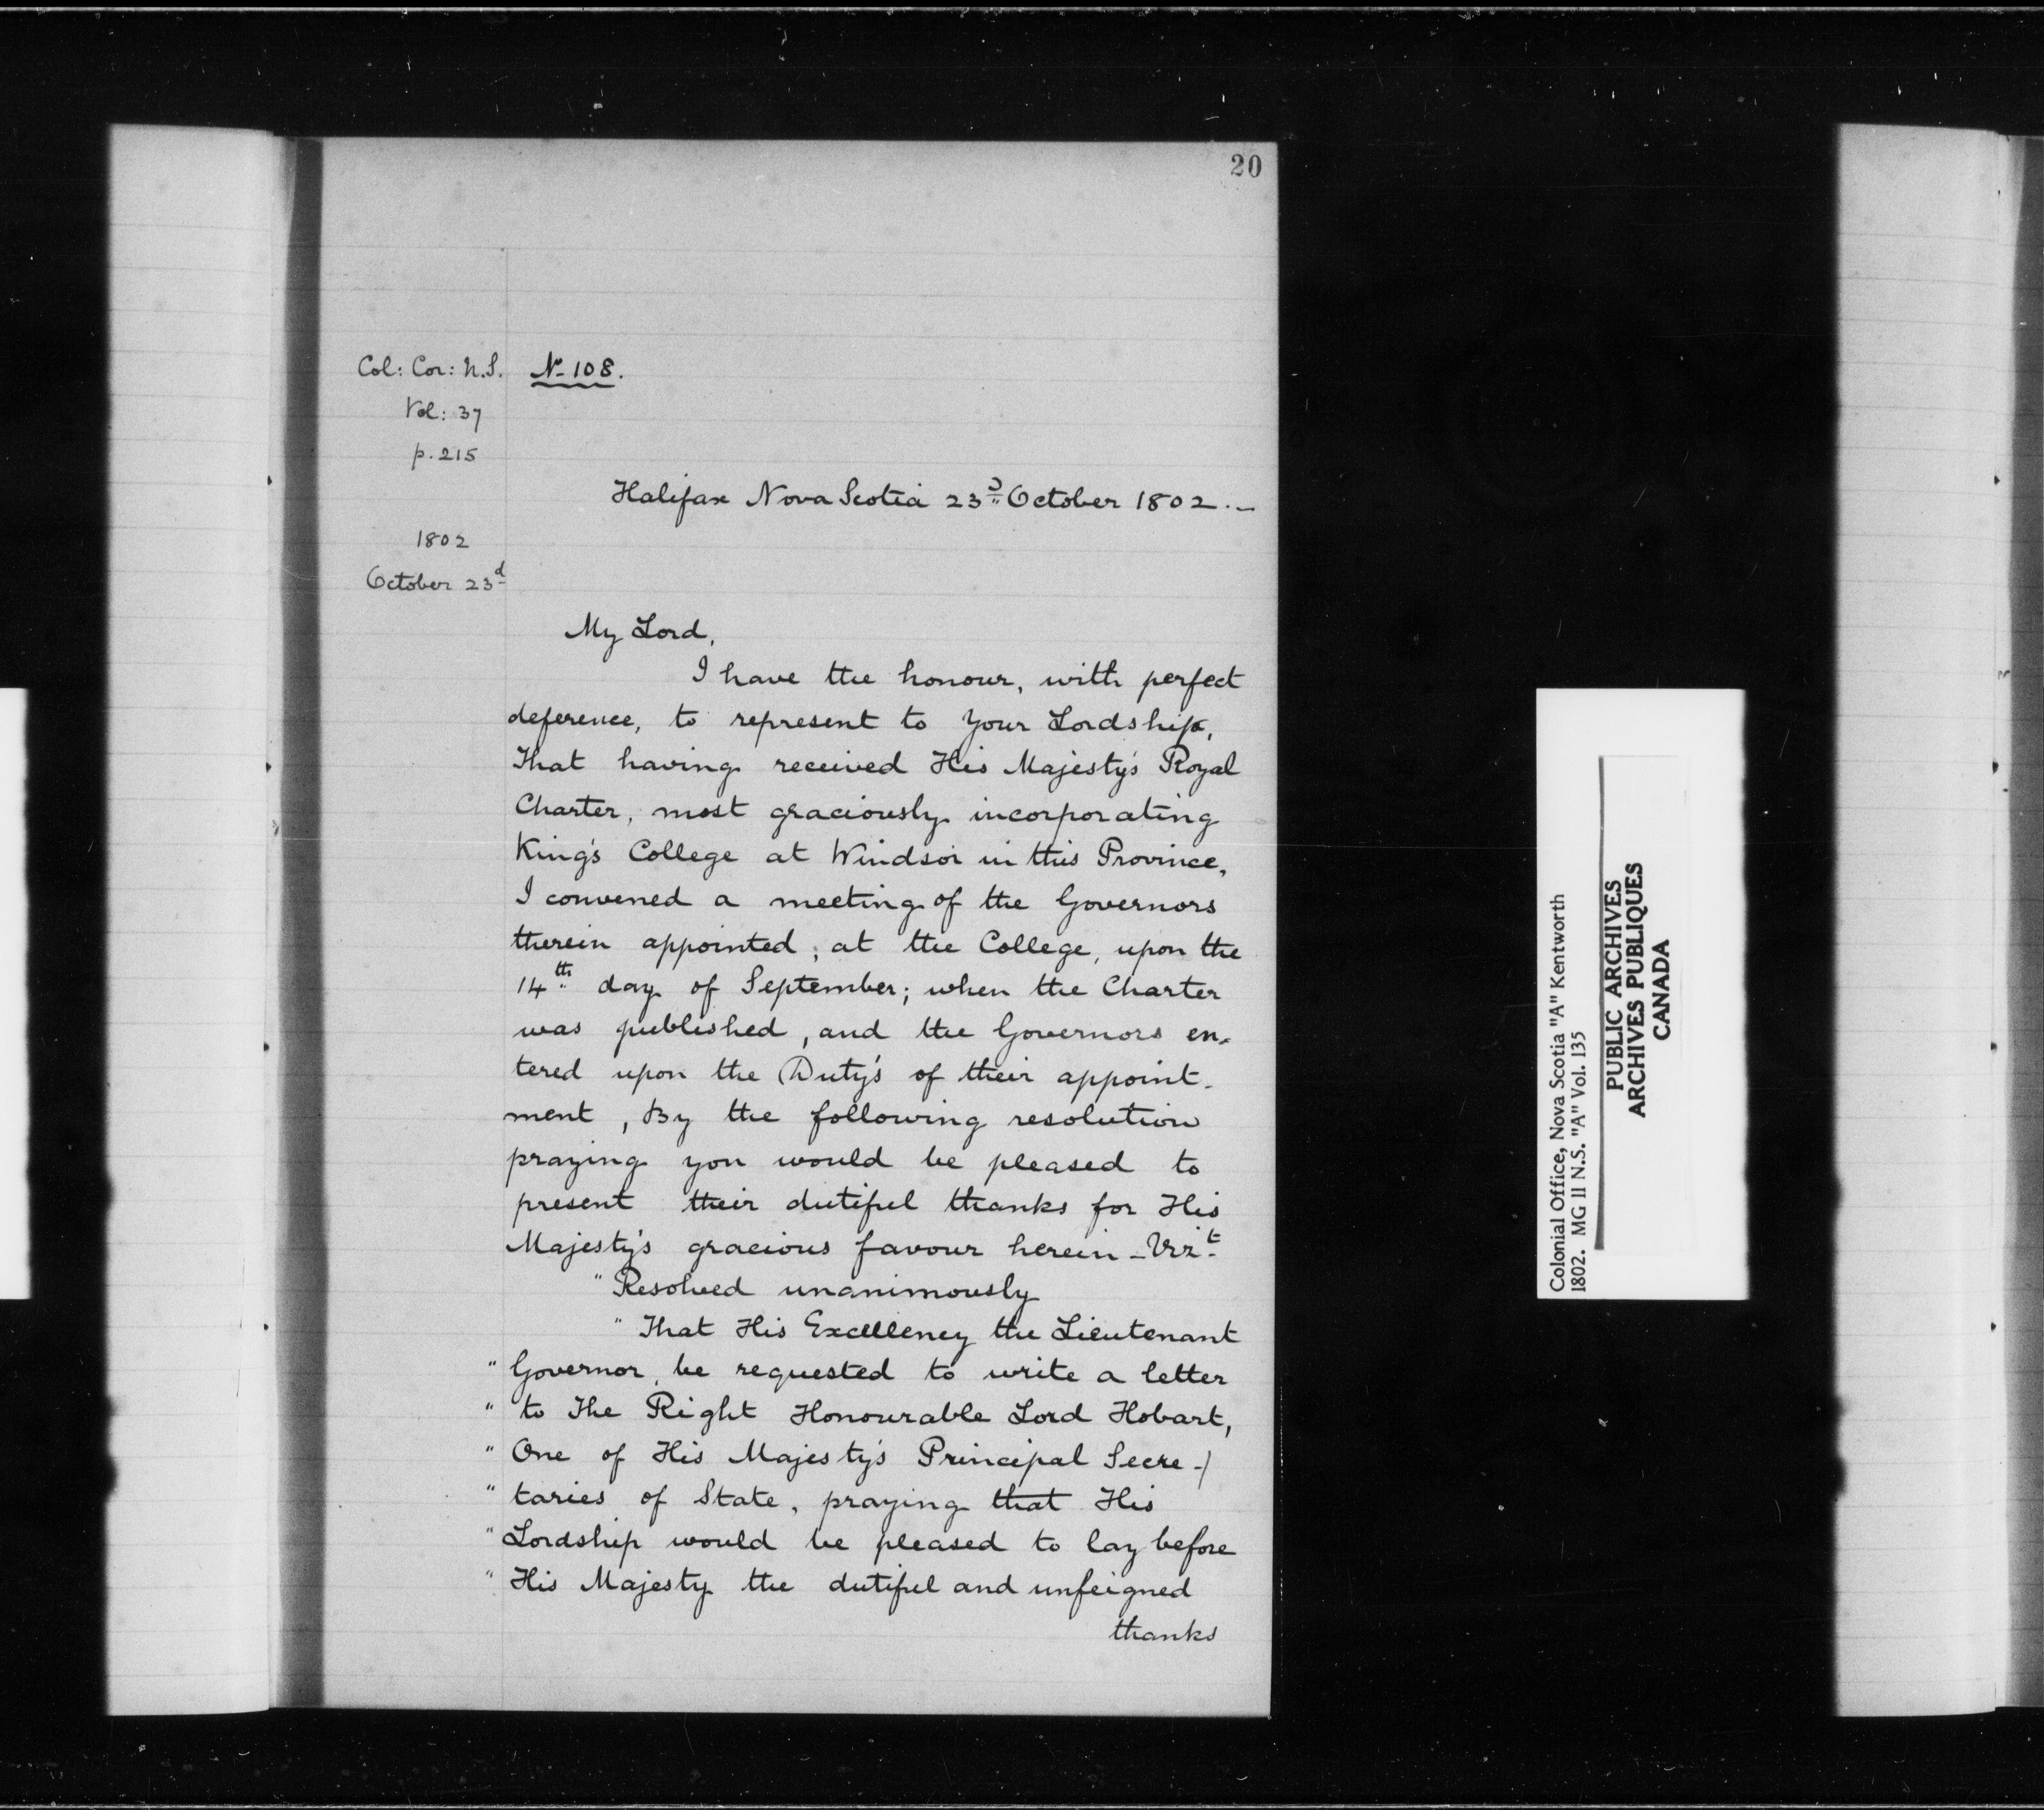 20
Col: Cor: N.S.
Vol: 37
p. 215
No. 108.
Halifax Nova Scotia 23d October 1802.—
1802
October 23d
My Lord,
I have the honour, with perfect
deference, to represent to your Lordship,
That having received His Majesty's Royal
Charter, most graciously incorporating
King's College at Windsor in this Province,
I convened a meeting of the Governors
therein appointed, at the College, upon the
14th day of September; when the Charter
was published, and the Governors en-
tered upon the Duty's of their appoint-
ment, By the following resolution
praying you would be pleased to
present their dutiful thanks for His
Majesty's gracious favour herein — Vizt
" Resolved unanimously
" That His Excellency the Lieutenant
" Governor, be requested to write a letter
" to The Right Honourable Lord Hobart,
" One of His Majesty's Principal Secre-/
" taries of State, praying that His
" Lordship would be pleased to lay before
" His Majesty the dutiful and unfeigned
thanks
Colonial Office, Nova Scotia "A" Kentworth
1802. MG 11 N.S. "A" Vol. 135
PUBLIC ARCHIVES
ARCHIVES PUBLIQUES
CANADA